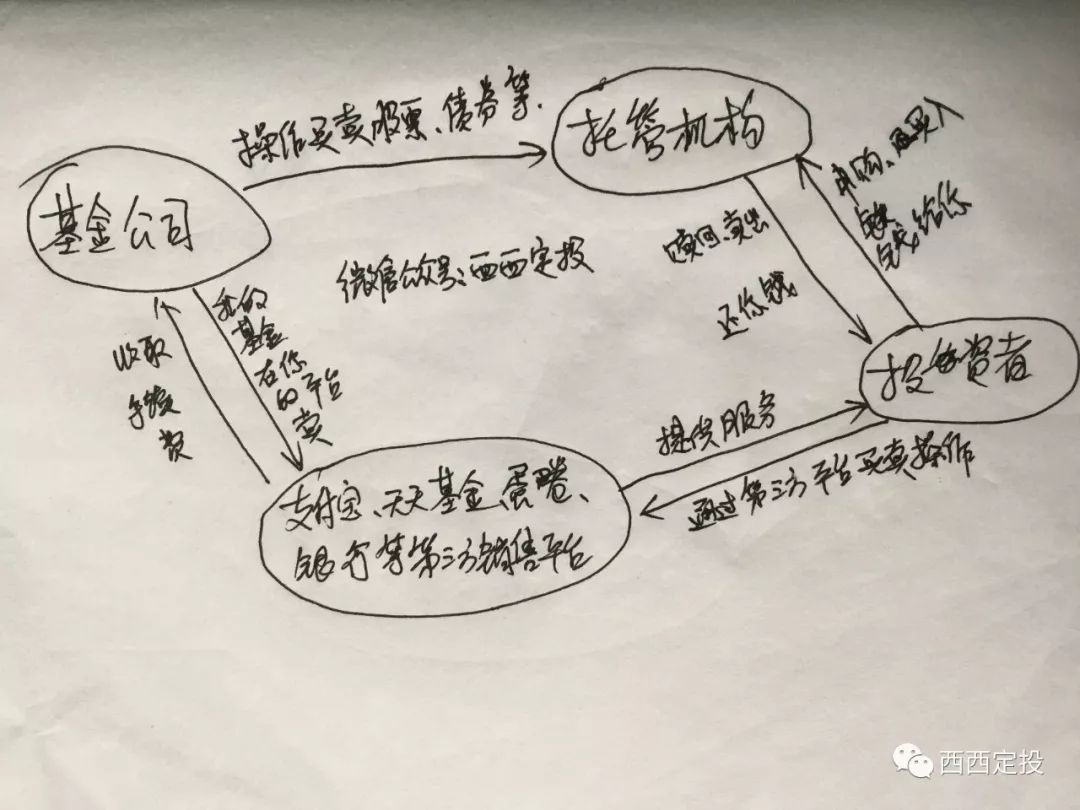 操作买卖股票、债券等.
托管机构
基金公司
申购、买入
钱给你
赎回、卖出
还你钱
微信公众号：西西定投
我的
基金
在你
的平台
卖
收取
手续
费
投资者
提供服务
通过第三方平台买卖操作
支付宝、天天基金、蛋卷、
银行等第三方销售平台
西西定投